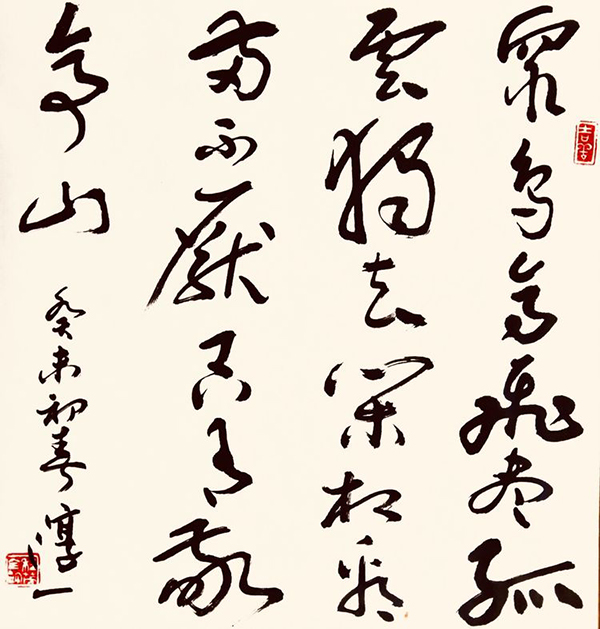 眾鳥高飛盡孤
雲獨去閑相看
兩不厭只有敬
亭山
癸未初春淳一